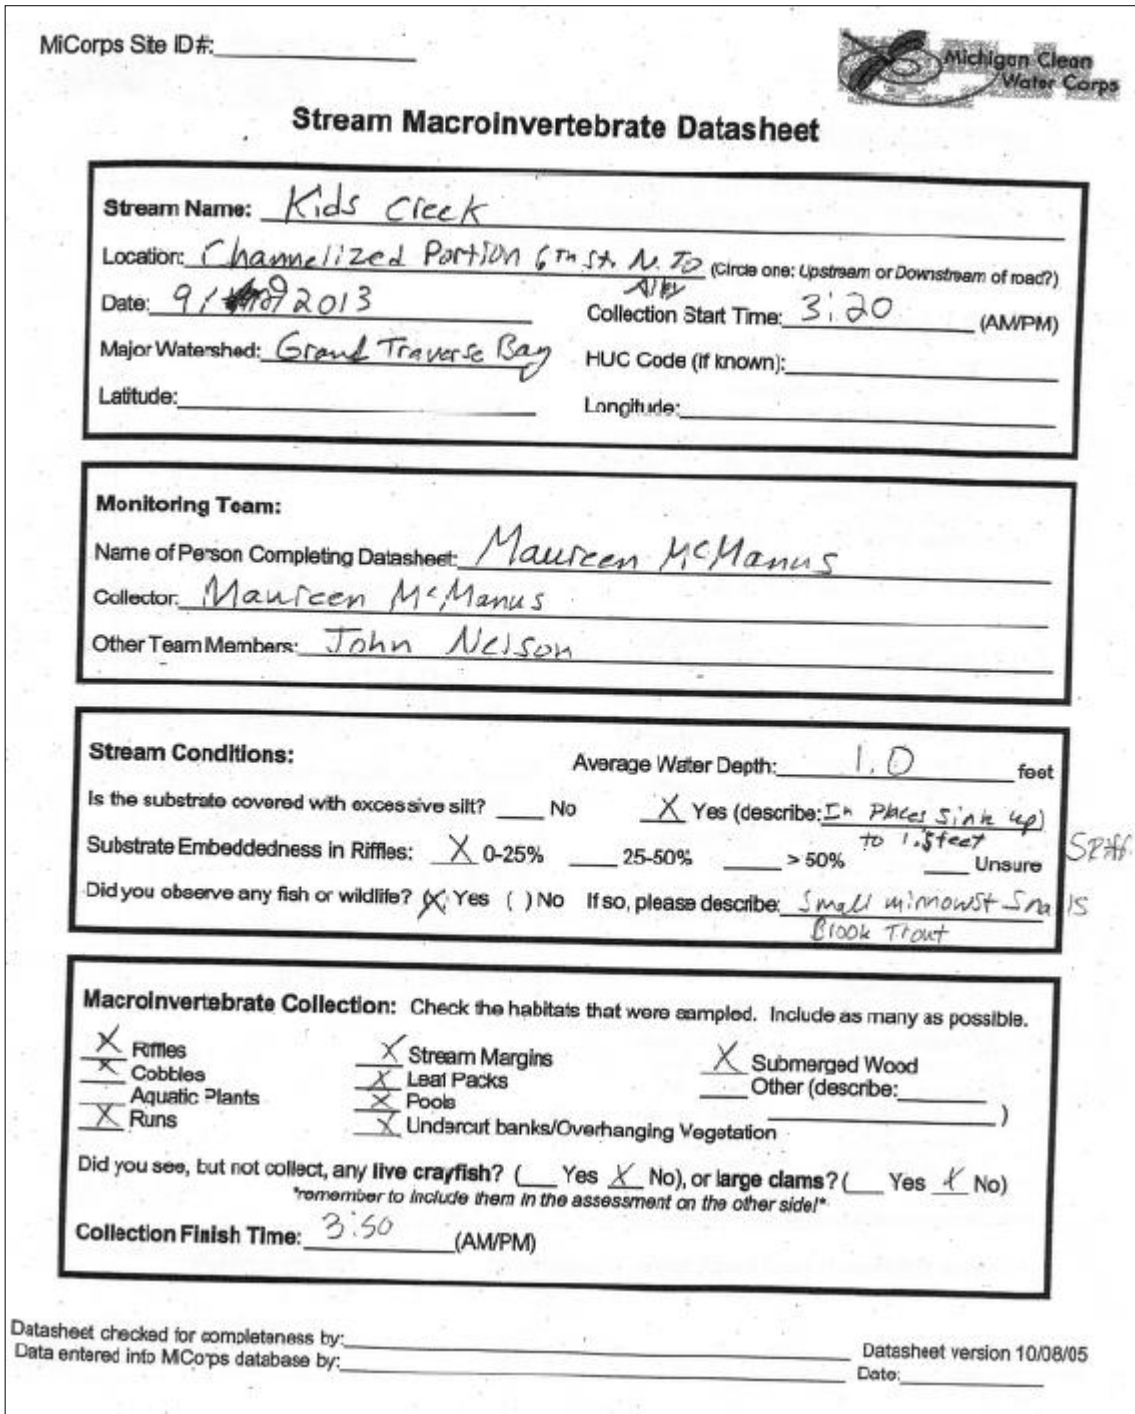 MiCorps Site ID#:
Michigan Clean
Water Corps
Stream Macroinvertebrate Datasheet
Stream Name: Kids Creek
Location: Channelized Portion 6th St. N. To (Circle one: Upstream or Downstream of road?)
Alley
Date: 9/ 2013 Collection Start Time: 3:20 (AM/PM)
Major Watershed: Grand Traverse Bay HUC Code (if known):
Latitude: Longitude:
Monitoring Team:
Name of Person Completing Datasheet: Maureen McManus
Collector: Maureen McManus
Other Team Members: John Nelson
Stream Conditions: Average Water Depth: 1.0 feet
Is the substrate covered with excessive silt? No X Yes (describe: In Places Sink up)
to 1.5 feet
Substrate Embeddedness in Riffles: X 0-25% 25-50% > 50% Unsure
Did you observe any fish or wildlife? (X) Yes ( ) No If so, please describe: Small minnows + Snails
Brook Trout
Macroinvertebrate Collection: Check the habitats that were sampled. Include as many as possible.
X Riffles X Stream Margins X Submerged Wood
X Cobbles X Leaf Packs Other (describe:
Aquatic Plants X Pools )
X Runs X Undercut banks/Overhanging Vegetation
Did you see, but not collect, any live crayfish? ( Yes X No), or large clams? ( Yes X No)
*remember to include them in the assessment on the other side!*
Collection Finish Time: 3:50 (AM/PM)
Datasheet checked for completeness by: Datasheet version 10/08/05
Data entered into MiCorps database by: Date: